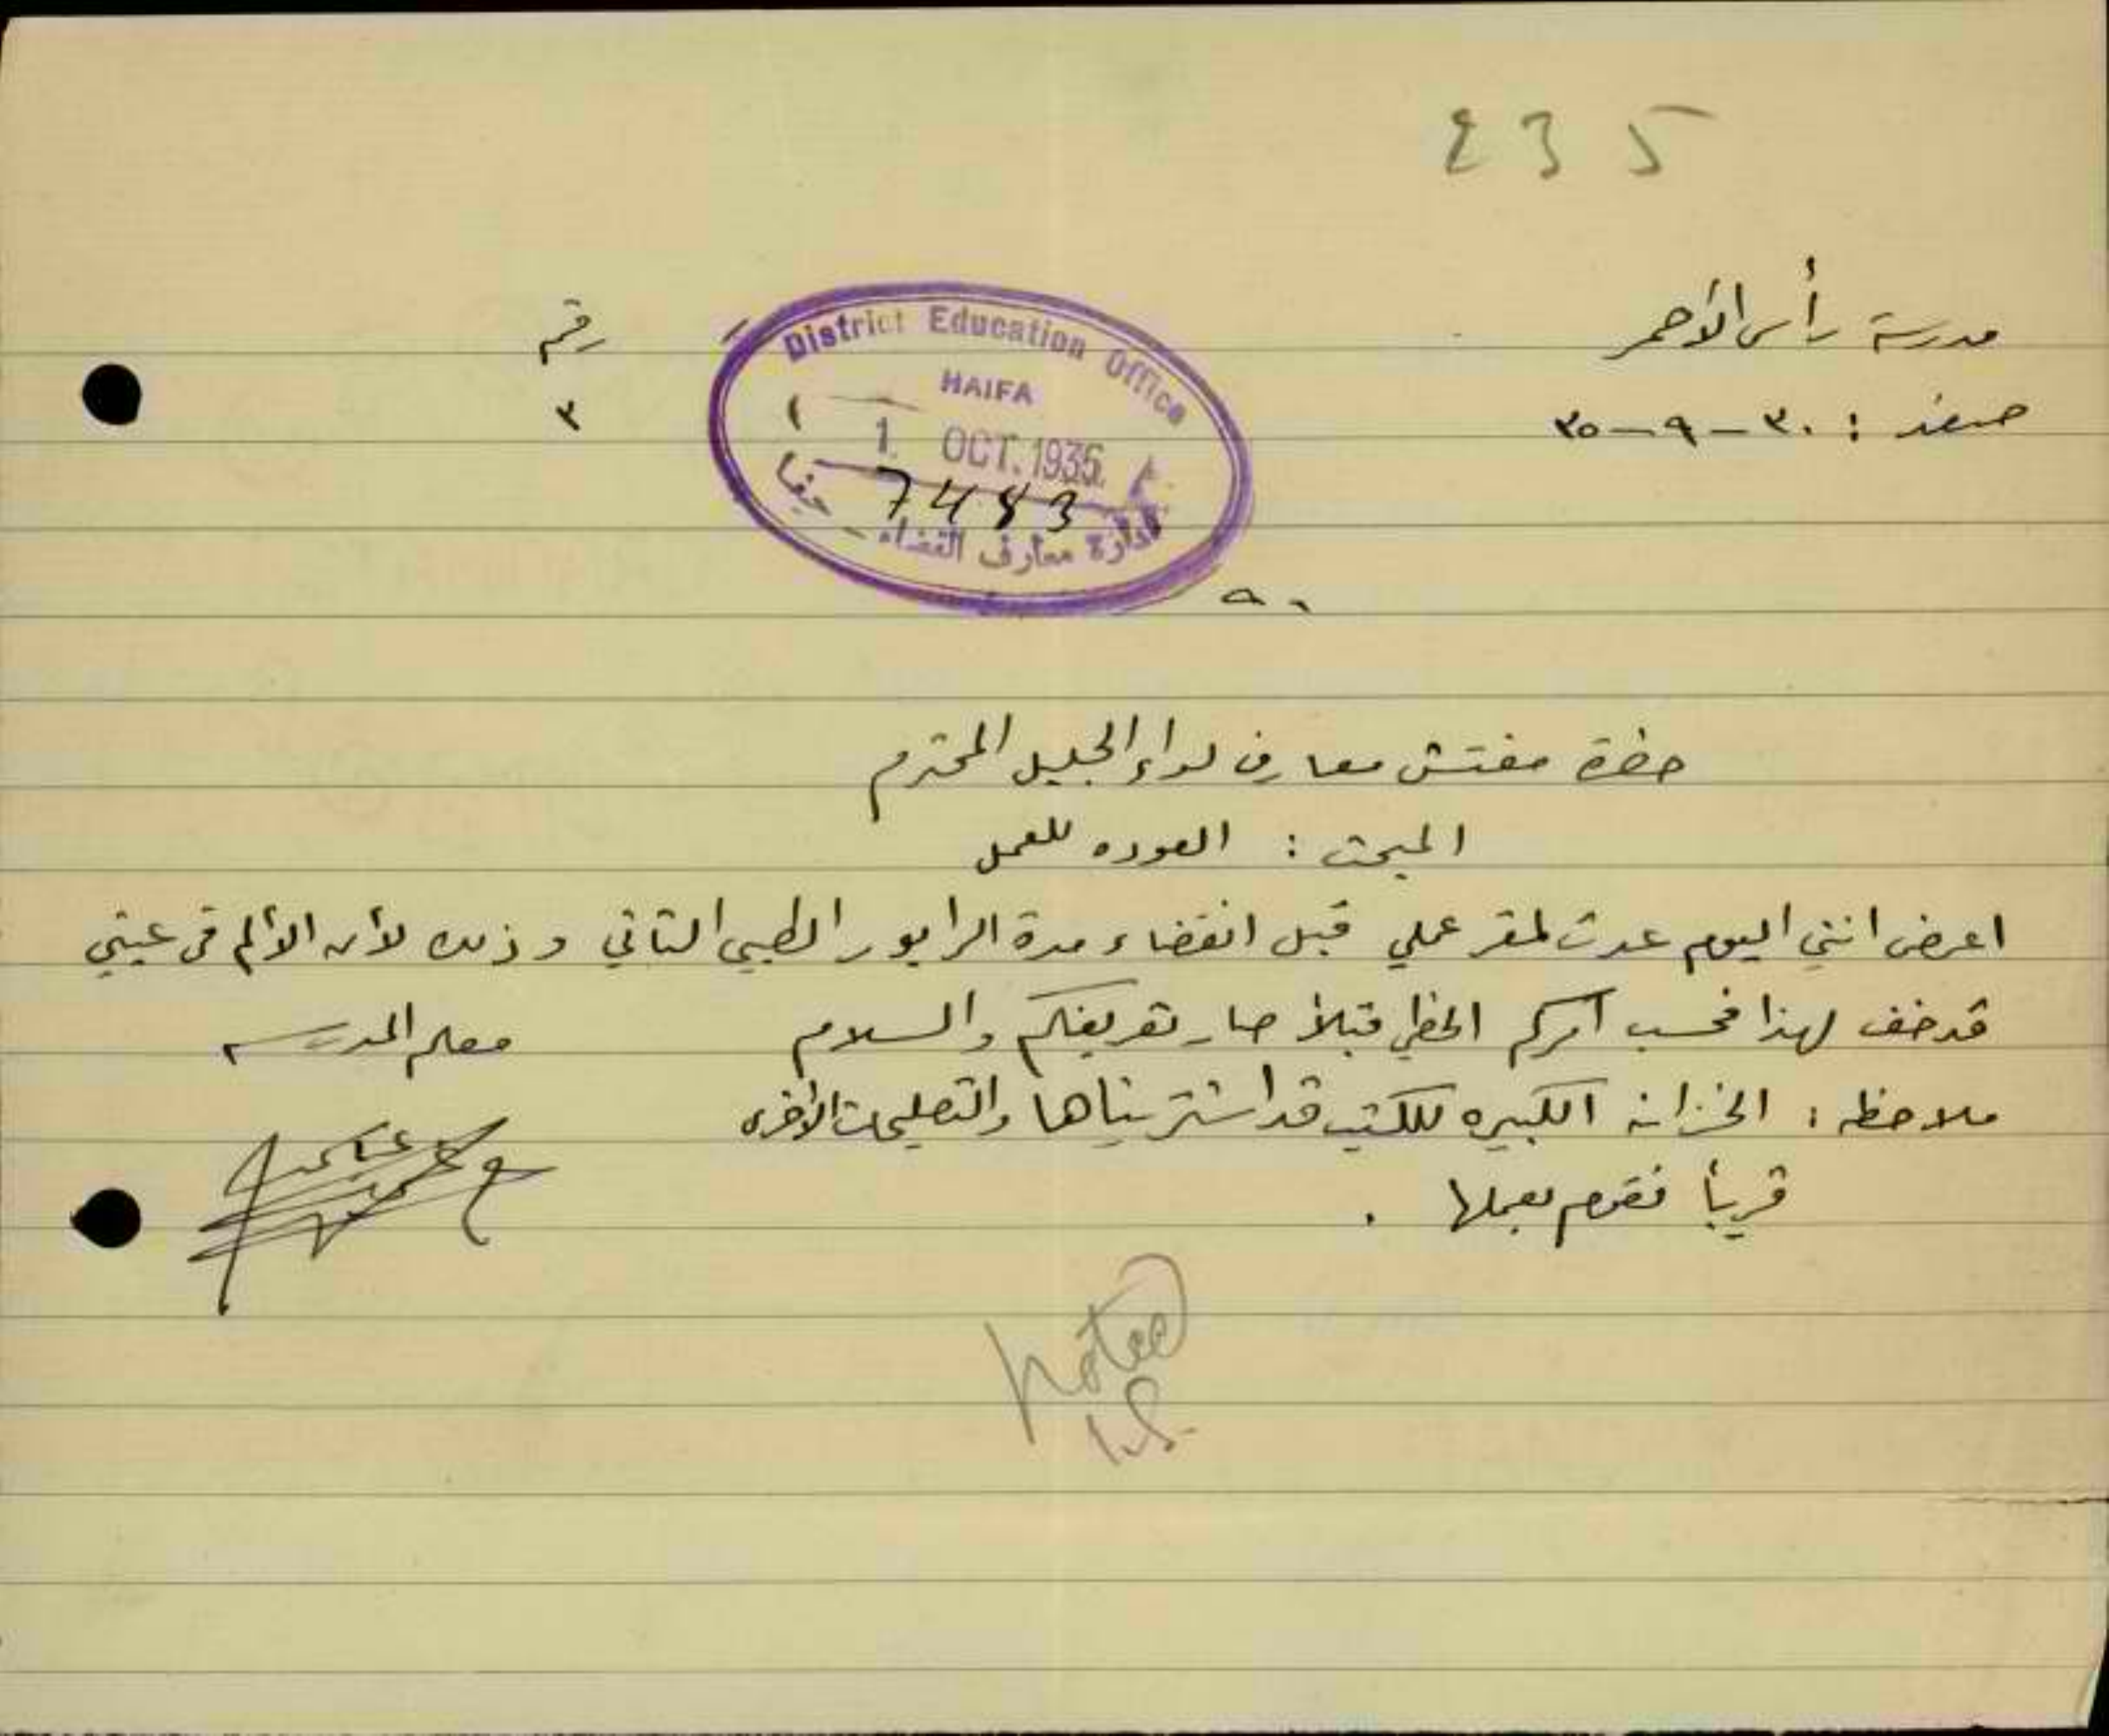 235
مدرسة رأس الأحمر
رقم
صفد : ٣٠ - ٩ - ٣٥
٣
District Education Office
HAIFA
1. OCT. 1935
7483
ادارة معارف القضاء - حيفا
حضرة مفتش معارف لواء الجليل المحترم
المبحث : العوده للعمل
اعرض انني اليوم عدت لمقر عملي قبل انقضاء مدة الرابور الطبي الثاني وذلك لأن الألم في عيني
قد خف لهذا فحسب امركم الخطي قبلاً صار تعريفكم والسلام
معلم المدرسه
ملاحظه : الخزانه الكبيره للكتب قد اشتريناها والتصليحات الأخرى
قريباً نقوم بعملها .
Noted